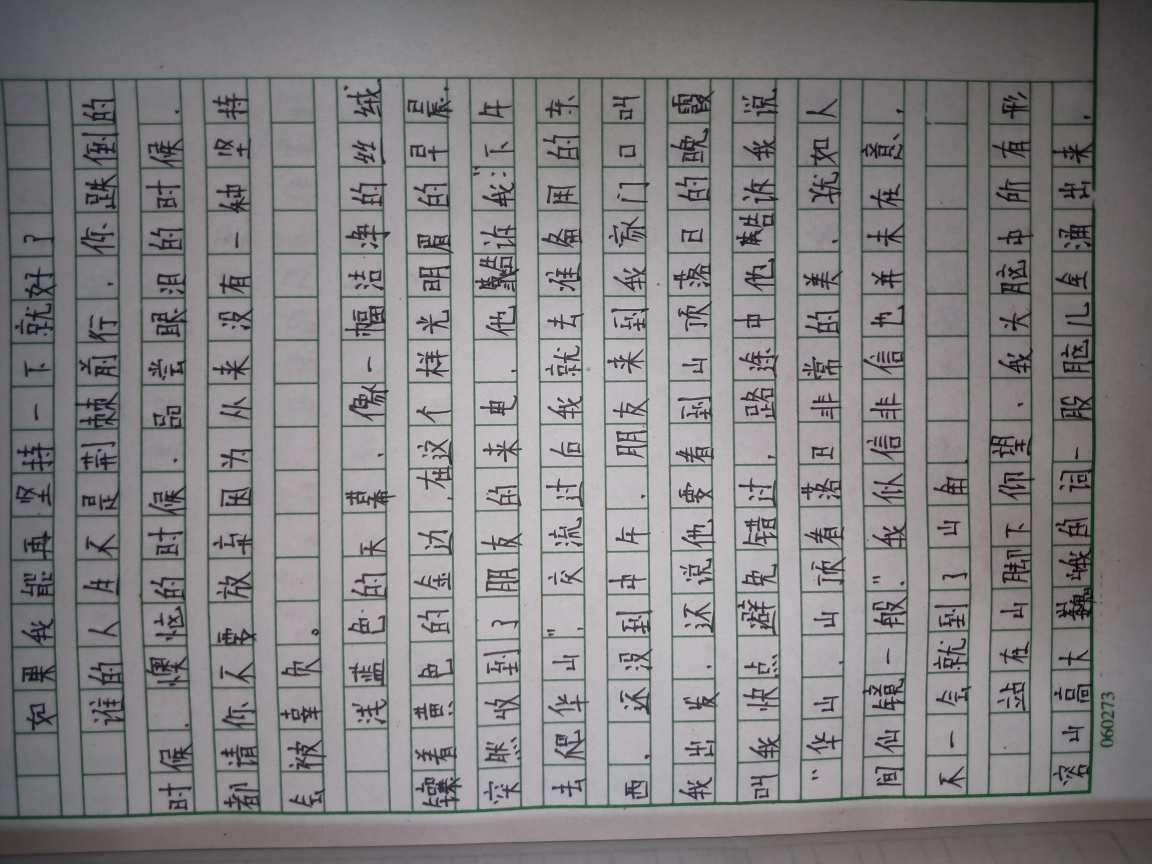 如果我能再坚持一下就好了
谁的人生不是荆棘前行，你跌倒的
时候，懊恼的时候，品尝眼泪的时候，
都请你不要放弃因为从来没有一种坚持
会被辜负。
浅蓝色的天幕、像一幅洁净的丝绒
镶着黄色的金边，在这个样光明眉的早晨，
突然收到了朋友的来电，他告诉我："下午
去爬华山"，交流过后我就去准备用的东
西，还没到中午，朋友来到我家门口叫
我出发，还说他要看到山顶落日的晚霞
叫我快点避免错过，路途中他告诉我说
"华山，山顶看落日非常的美、犹如人
间仙镜一般"，我似信非信也并未在意，
不一会就到了山角，
站在山脚下仰望、我头脑中所有形
容山高大巍峨的词一股脑儿全涌出来，
060273